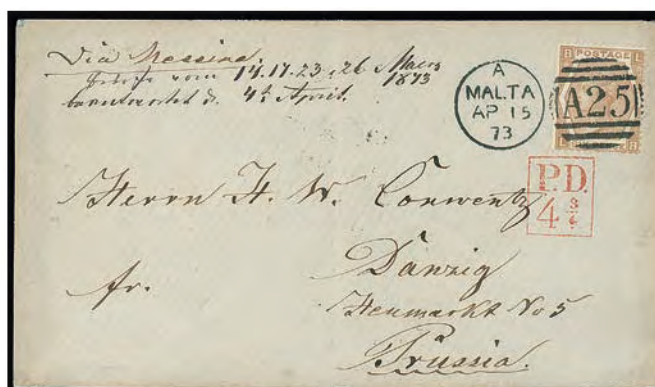 Via Messina.
Briefe vom 14. 17. 23. & 26 Maerz
1873
beantwortet d. 4t. April.
A
MALTA
AP 15
73
B POSTAGE L
A25
L B
P.D.
4 3/4
Herrn H. W. Conwentz
Danzig
fr.
Heumarkt No 5
Prussia.